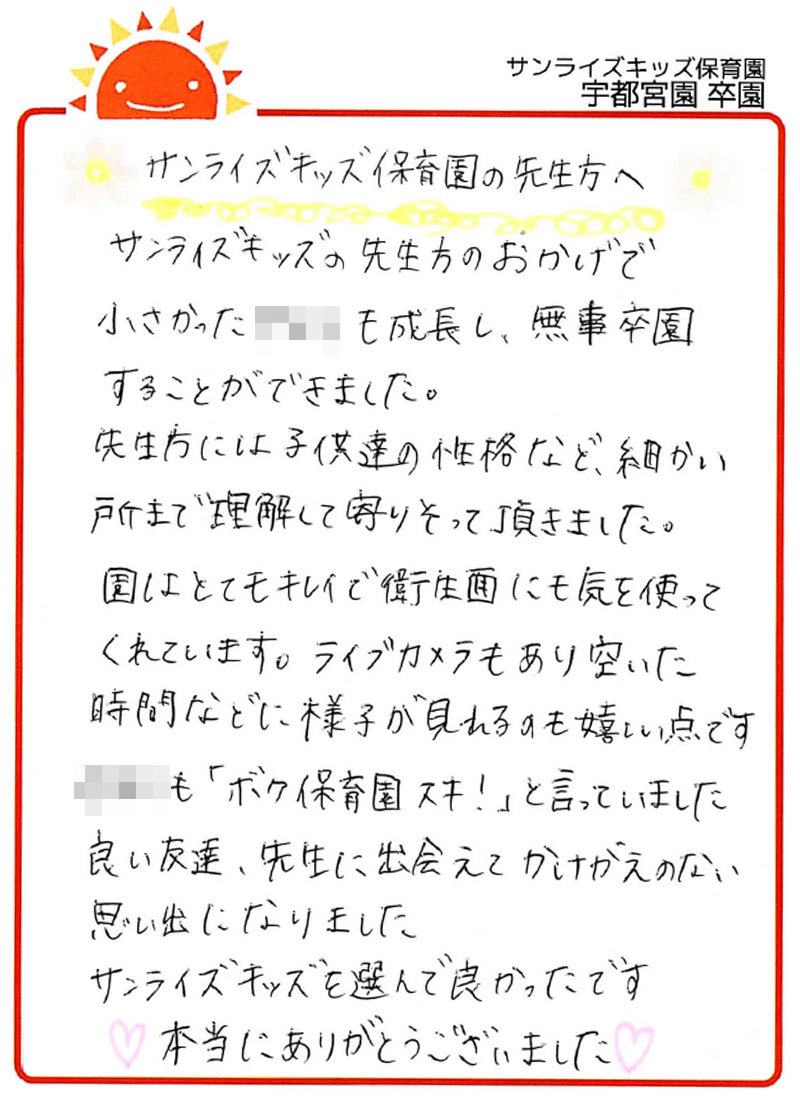 サンライズキッズ保育園
宇都宮園 卒園
サンライズキッズ保育園の先生方へ
サンライズキッズの先生方のおかげで
小さかった も成長し、無事卒園
することができました。
先生方には子供達の性格など、細かい
所まで理解して寄りそって頂きました。
園はとてもキレイで衛生面にも気を使って
くれています。ライブカメラもあり空いた
時間などに様子が見れるのも嬉しい点です
も「ボク保育園スキ!」と言っていました
良い友達、先生に出会えてかけがえのない
思い出になりました
サンライズキッズを選んで良かったです
本当にありがとうございました